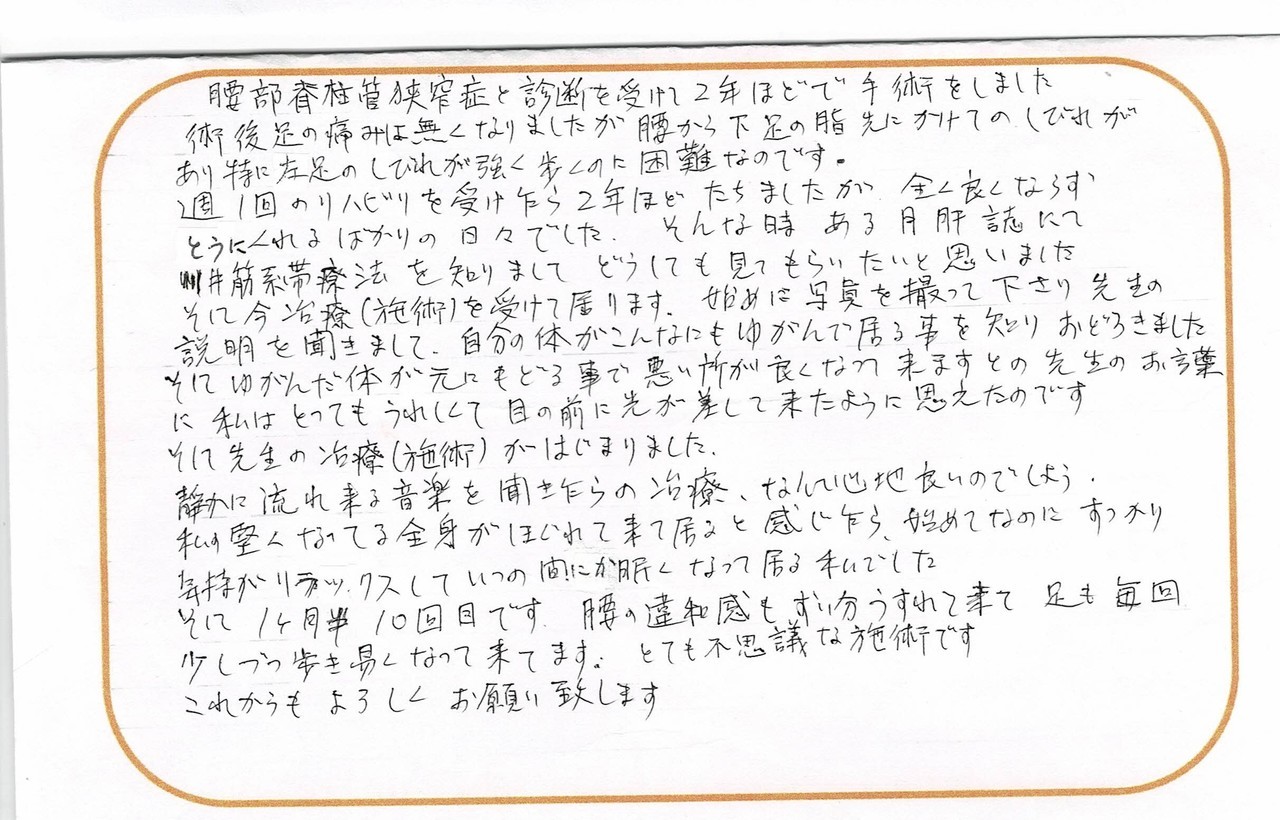 腰部脊柱管狭窄症と診断を受けて2年ほどで手術をしました
術後足の痛みは無くなりましたが腰から下足の脂先にかけてのしびれが
あり特に左足のしびれが強く歩くのに困難なのです。
週1回のリハビリを受け乍ら2年ほどたちましたが全く良くならず
とうにくれるばかりの日々でした. そんな時ある月肝誌にて
井筋系帯療法を知りまして どうしても見てもらいたいと思いました
そして今治療(施術)を受けて居ります. 始めに写真を撮って下さり先生の
説明を聞きまして. 自分の体がこんなにもゆがんで居る事を知りおどろきました
そしてゆがんだ体が元にもどる事で悪い所が良くなって来ますとの先生のお言葉
に私はとってもうれしくて目の前に光が差して来たように思えたのです
そして先生の治療(施術)がはじまりました.
静かに流れ来る音楽を聞き乍らの治療、なんて心地良いのでしょう.
私の堅くなってる全身がほぐれて来て居ると感じ乍ら、始めてなのにすっかり
気持がリラックスしていつの間にか眠くなって居る私でした
そして1ヶ月半10回目です. 腰の違和感もずい分うすれて来て 足も毎回
少しづつ歩き易くなって来てます. とても不思議な施術です
これからもよろしくお願い致します